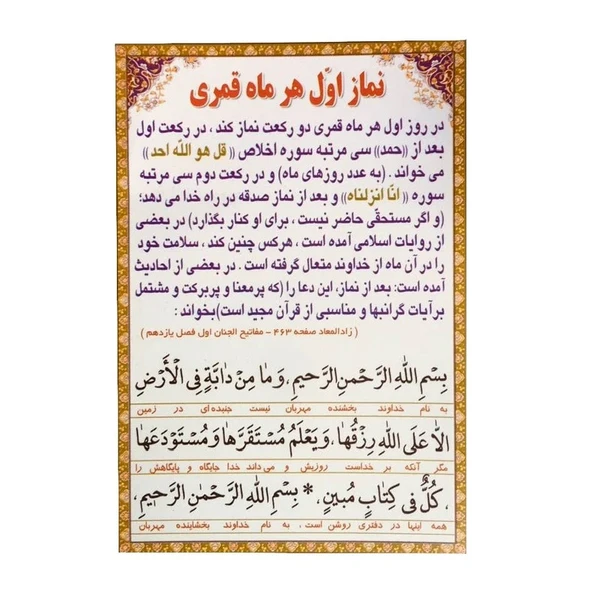 نماز اوّل هر ماه قمری
در روز اول هر ماه قمری دو رکعت نماز کند ، در رکعت اول
بعد از ((حمد)) سی مرتبه سوره اخلاص (( قل هو الله احد ))
می خواند . (به عدد روزهای ماه) و در رکعت دوم سی مرتبه
سوره (( انّا انزلناه )) و بعد از نماز صدقه در راه خدا می دهد؛
(و اگر مستحقّی حاضر نیست ، برای او کنار بگذارد) در بعضی
از روایات اسلامی آمده است ، هرکس چنین کند ، سلامت خود
را در آن ماه از خداوند متعال گرفته است . در بعضی از احادیث
آمده است: بعد از نماز، این دعا را (که پرمعنا و پربرکت و مشتمل
برآیات گرانبها و مناسبی از قرآن مجید است) بخواند :
( زادالمعاد صفحه ۴۶۳ - مفاتیح الجنان اول فصل یازدهم )
بِسْمِ اللهِ الرَّحْمنِ الرَّحیمِ ، وَ ما مِنْ دابَّةٍ فِی الْأَرْضِ
به نام خداوند بخشنده مهربان نیست جنبده‌ای در زمین
اِلّا عَلَی اللهِ رِزْقُها ، وَ یَعْلَمُ مُسْتَقَرَّها وَ مُسْتَوْدَعَها
مگر آنکه بر خداست روزیش و می‌داند خدا جایگاه و پایگاهش را
، کُلٌّ فی کِتابٍ مُبینٍ ، * بِسْمِ اللهِ الرَّحْمٰنِ الرَّحیمِ ،
همه اینها در دفتری روشن است ، به نام خداوند بخشاینده مهربان